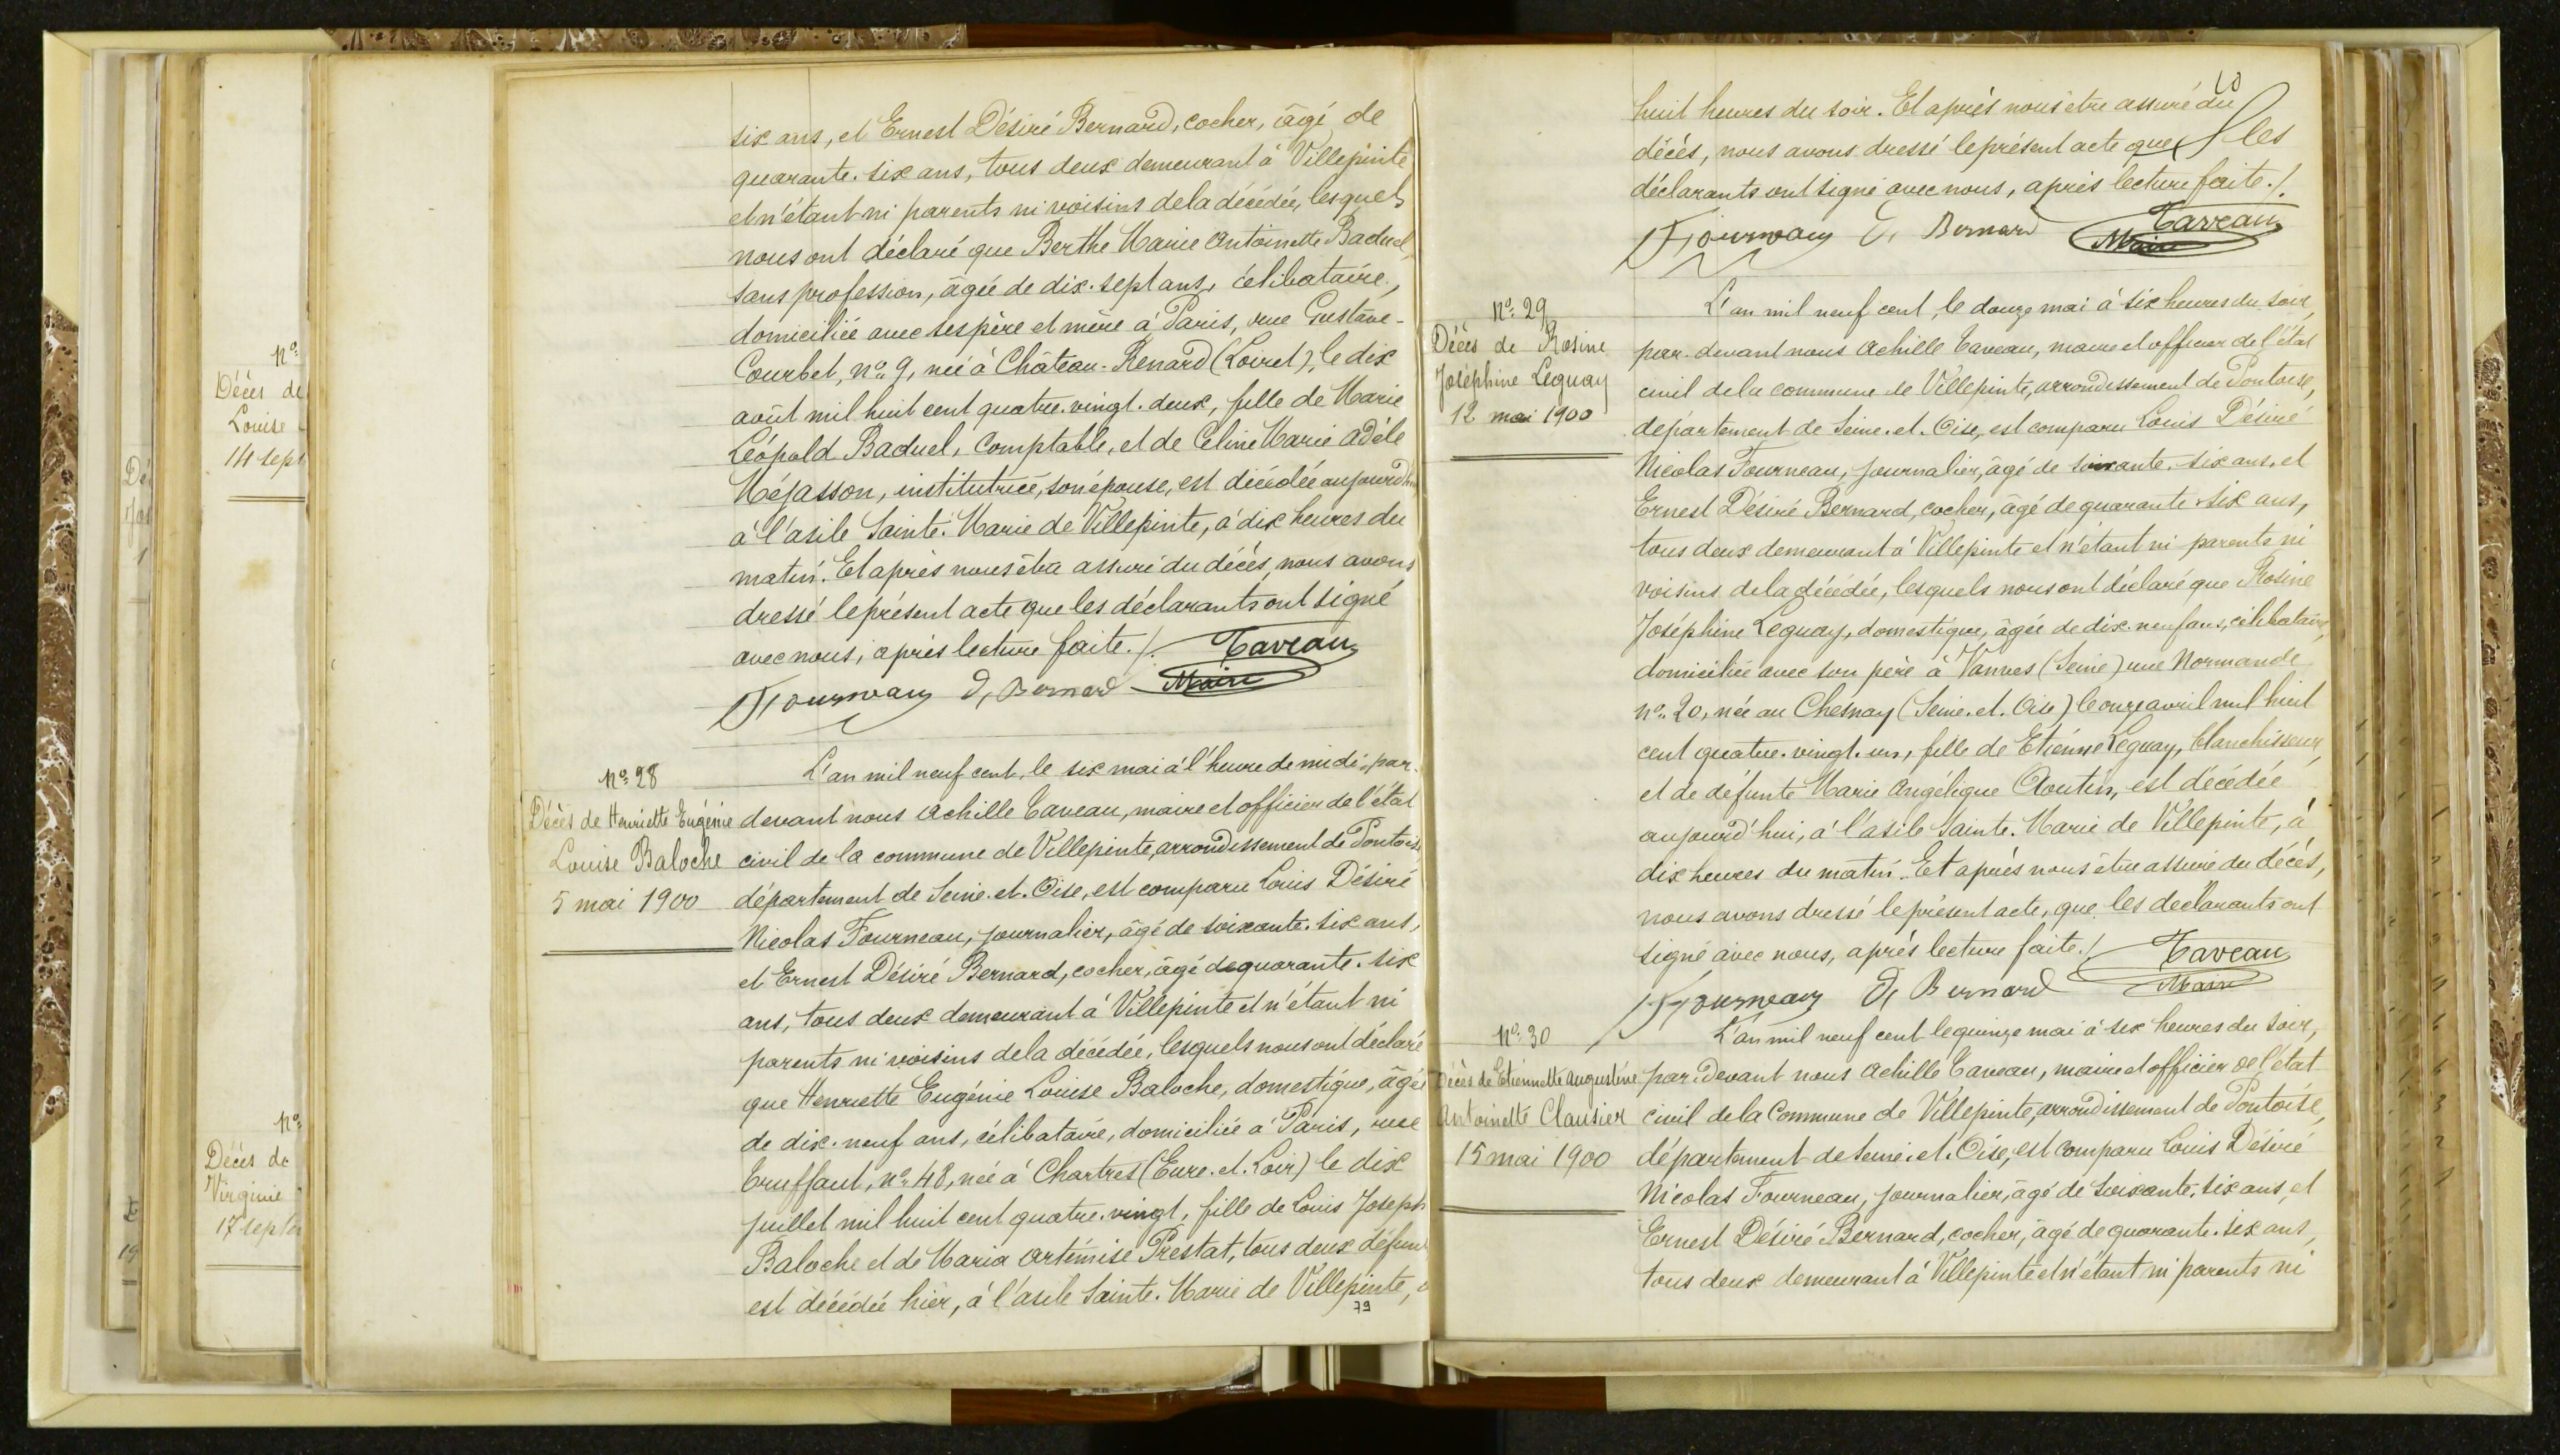 Nº
Décès de
Louise
14 sept
Nº
Décès de
Virginie
17 septe
six ans, et Ernest Désiré Bernard, cocher, âgé de
quarante-six ans, tous deux demeurant à Villepinte
et n'étant ni parents ni voisins de la décédée, lesquels
nous ont déclaré que Berthe Marie Antoinette Baduel,
sans profession, âgée de dix-sept ans, célibataire,
domiciliée avec ses père et mère à Paris, rue Gustave-
Courbet, nº 9, née à Château-Renard (Loiret), le dix
août mil huit cent quatre-vingt-deux, fille de Marie
Léopold Baduel, comptable, et de Céline Marie Adèle
Méjasson, institutrice, son épouse, est décédée aujourd'hui
à l'asile Sainte-Marie de Villepinte, à dix heures du
matin. Et après nous être assuré du décès, nous avons
dressé le présent acte que les déclarants ont signé
avec nous, après lecture faite./. Taveau
Fourneau D, Bernard Maire
Nº 28
Décès de Henriette Eugénie
Louise Baloche
5 mai 1900
L'an mil neuf cent, le six mai à l'heure de midi, par-
devant nous Achille Taveau, maire et officier de l'état
civil de la commune de Villepinte, arrondissement de Pontoise,
département de Seine-et-Oise, est comparu Louis Désiré
Nicolas Fourneau, journalier, âgé de soixante-six ans,
et Ernest Désiré Bernard, cocher, âgé de quarante-six
ans, tous deux demeurant à Villepinte et n'étant ni
parents ni voisins de la décédée, lesquels nous ont déclaré
que Henriette Eugénie Louise Baloche, domestique, âgée
de dix-neuf ans, célibataire, domiciliée à Paris, rue
Truffaut, nº 48, née à Chartres (Eure-et-Loir) le dix
juillet mil huit cent quatre-vingt, fille de Louis Joseph
Baloche et de Maria Artémise Prestat, tous deux défunts
est décédée hier, à l'asile Sainte-Marie de Villepinte, à
79
10
huit heures du soir. Et après nous être assuré du
décès, nous avons dressé le présent acte que les
déclarants ont signé avec nous, après lecture faite./.
Fourneau D, Bernard Taveau
Maire
Nº 29
Décès de Rosine
Joséphine Leguay
12 mai 1900
L'an mil neuf cent, le douze mai à six heures du soir,
par-devant nous Achille Taveau, maire et officier de l'état
civil de la commune de Villepinte, arrondissement de Pontoise,
département de Seine-et-Oise, est comparu Louis Désiré
Nicolas Fourneau, journalier, âgé de soixante-six ans, et
Ernest Désiré Bernard, cocher, âgé de quarante-six ans,
tous deux demeurant à Villepinte et n'étant ni parents ni
voisins de la décédée, lesquels nous ont déclaré que Rosine
Joséphine Leguay, domestique, âgée de dix-neuf ans, célibataire,
domiciliée avec son père à Vanves (Seine) rue Normande
nº 20, née au Chesnay (Seine-et-Oise) le onze avril mil huit
cent quatre-vingt-un, fille de Etienne Leguay, blanchisseur,
et de défunte Marie Angélique Aoutin, est décédée
aujourd'hui, à l'asile Sainte-Marie de Villepinte, à
dix heures du matin. Et après nous être assuré du décès,
nous avons dressé le présent acte, que les déclarants ont
signé avec nous, après lecture faite./. Taveau
Fourneau D, Bernard Maire
Nº 30
Décès de Etiennette Augustine
Antoinette Clausier
15 mai 1900
L'an mil neuf cent le quinze mai à six heures du soir,
par-devant nous Achille Taveau, maire et officier de l'état
civil de la Commune de Villepinte, arrondissement de Pontoise,
département de Seine-et-Oise, est comparu Louis Désiré
Nicolas Fourneau, journalier, âgé de soixante-six ans, et
Ernest Désiré Bernard, cocher, âgé de quarante-six ans,
tous deux demeurant à Villepinte et n'étant ni parents ni